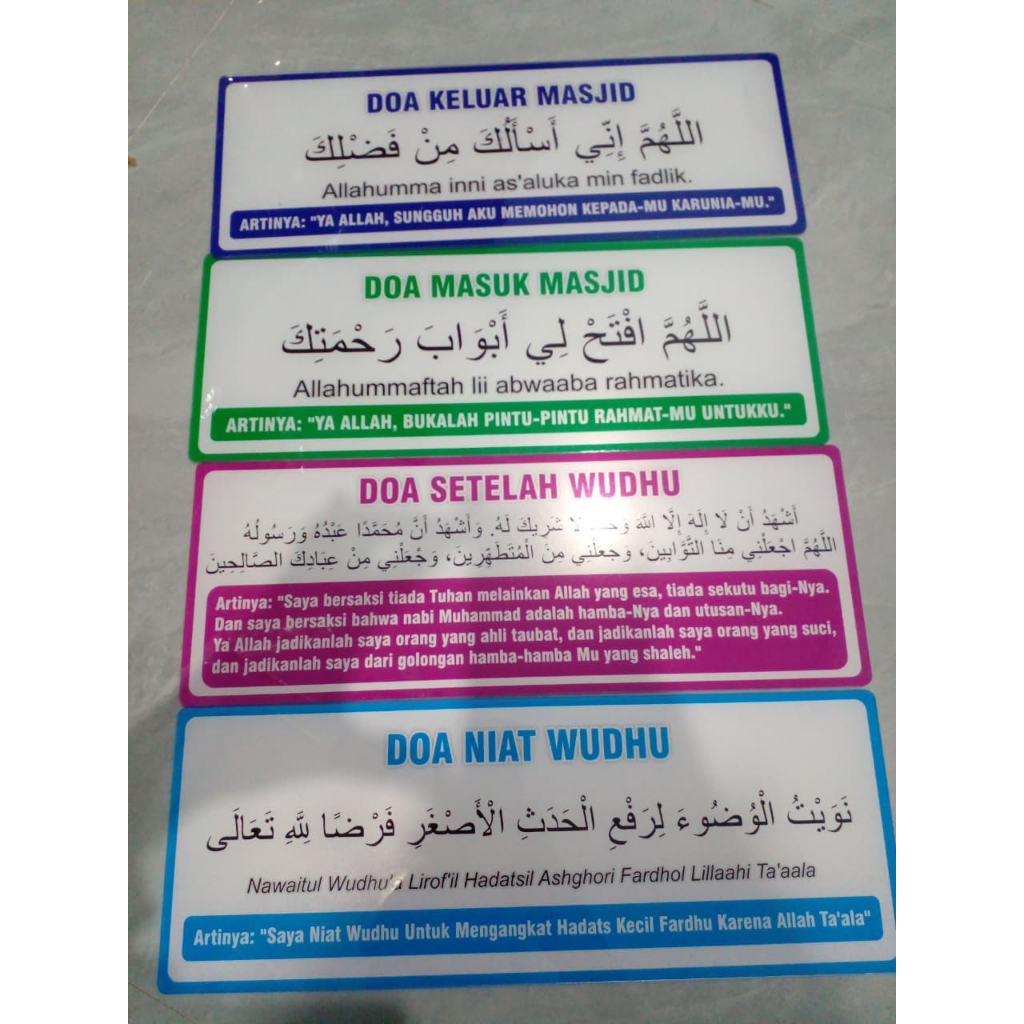 DOA KELUAR MASJID
اللَّهُمَّ إِنِّي أَسْأَلُكَ مِنْ فَضْلِكَ
Allahumma inni as'aluka min fadlik.
ARTINYA: "YA ALLAH, SUNGGUH AKU MEMOHON KEPADA-MU KARUNIA-MU."
DOA MASUK MASJID
اللَّهُمَّ افْتَحْ لِي أَبْوَابَ رَحْمَتِكَ
Allahummaftah lii abwaaba rahmatika.
ARTINYA: "YA ALLAH, BUKALAH PINTU-PINTU RAHMAT-MU UNTUKKU."
DOA SETELAH WUDHU
أَشْهَدُ أَنْ لَا إِلَهَ إِلَّا اللَّهَ لَا شَرِيكَ لَهُ. وَأَشْهَدُ أَنَّ مُحَمَّدًا عَبْدُهُ وَرَسُولُهُ
اللَّهُمَّ اجْعَلْنِي مِنَا التَّوَّابِينَ، وَجَعَلْنِي مِنَ الْمُتَطَهِّرِينَ، وَجْعَلْنِي مِنْ عِبَادِكَ الصَّالِحِينَ
Artinya: "Saya bersaksi tiada Tuhan melainkan Allah yang esa, tiada sekutu bagi-Nya.
Dan saya bersaksi bahwa nabi Muhammad adalah hamba-Nya dan utusan-Nya.
Ya Allah jadikanlah saya orang yang ahli taubat, dan jadikanlah saya orang yang suci,
dan jadikanlah saya dari golongan hamba-hamba Mu yang shaleh."
DOA NIAT WUDHU
نَوَيْتُ الْوُضُوءَ لِرَفْعِ الْحَدَثِ الْأَصْغَرِ فَرْضًا لِلَّهِ تَعَالَى
Nawaitul Wudhu'a Lirof'il Hadatsil Ashghori Fardhol Lillaahi Ta'aala
Artinya: "Saya Niat Wudhu Untuk Mengangkat Hadats Kecil Fardhu Karena Allah Ta'ala"